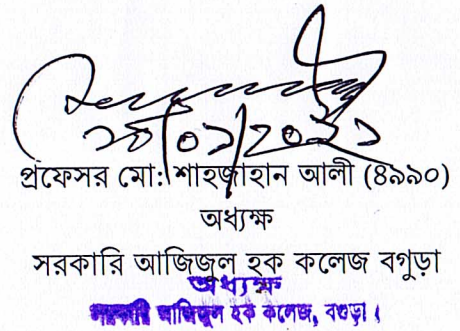 ২৮/০১/২০২১
প্রফেসর মো: শাহজাহান আলী (৪৯৯০)
অধ্যক্ষ
সরকারি আজিজুল হক কলেজ বগুড়া
অধ্যক্ষ
সরকারি আজিজুল হক কলেজ, বগুড়া।